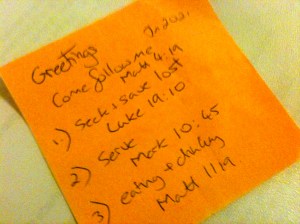 Greetings
Jn 20:21
Come follow me
Matt 4:19
1) Seek + save lost
Luke 19:10
2) Serve
Mark 10:45
3) eating + drinking
Matt 11 19